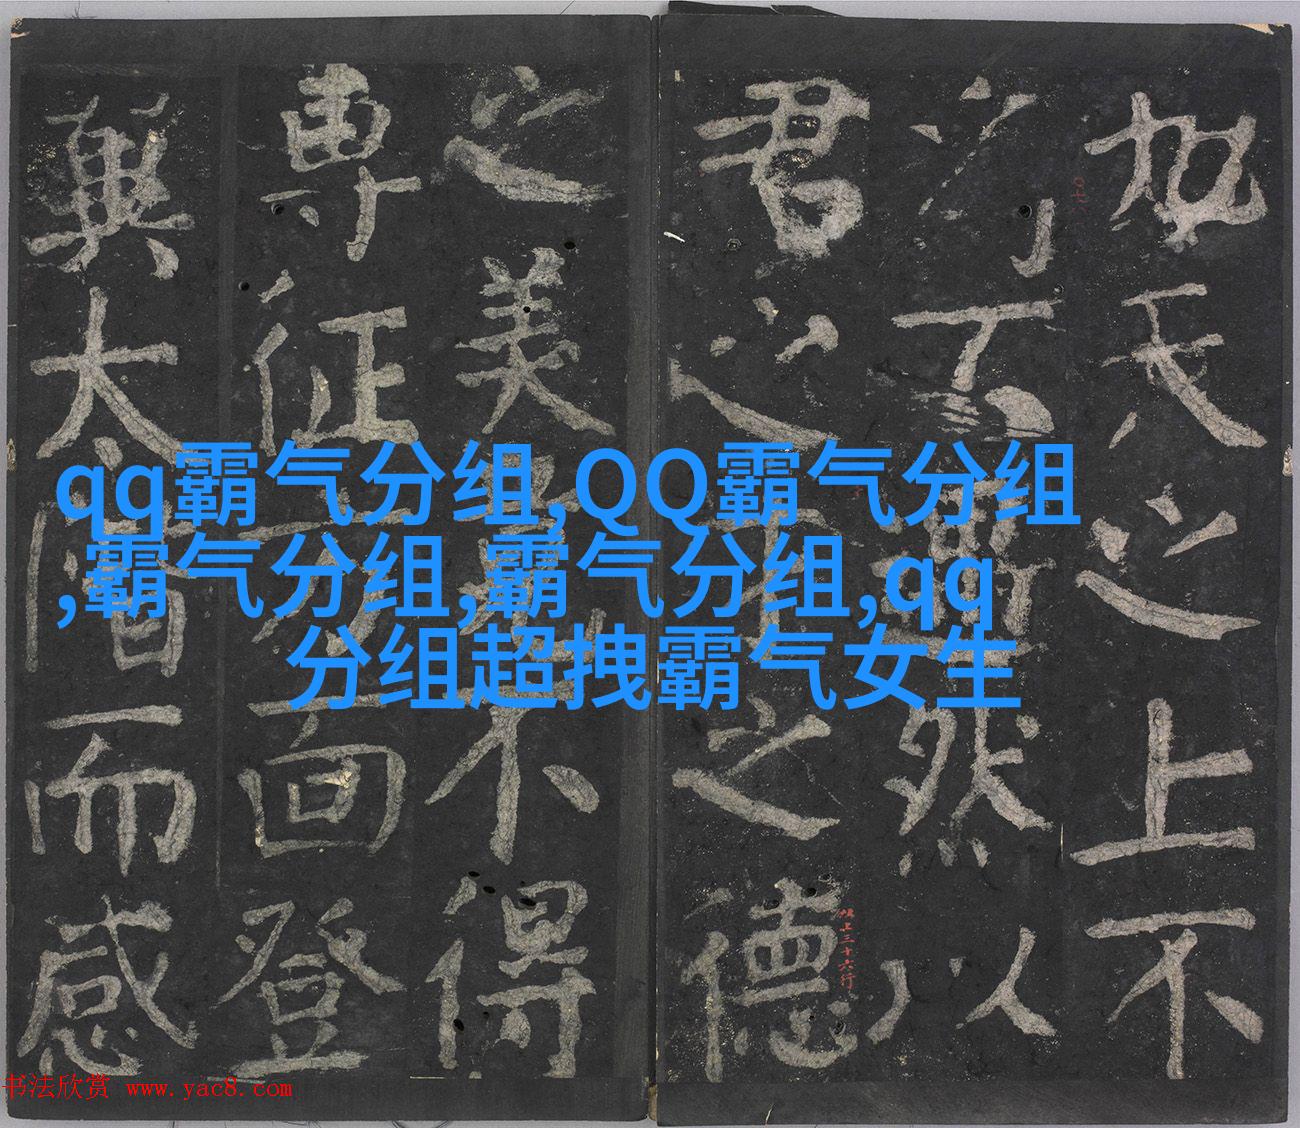 天之上不
然以
君之之德
之美不得
專征方面登
太階而感
qq霸气分组,QQ霸气分组
,霸气分组,霸气分组,qq
分组超拽霸气女生
上三十六行
书法欣赏 www.yac8.com